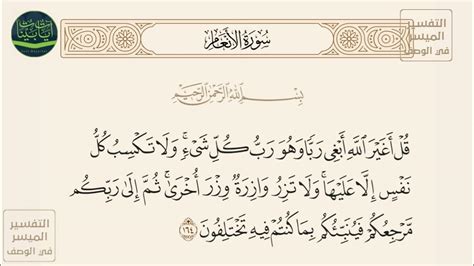 آيات بينات
سورة الأنعام
التفسير
الميسر
في الوصف
بسم الله الرحمن الرحيم
قُلْ أَغَيْرَ ٱللَّهِ أَبْغِى رَبًّا وَهُوَ رَبُّ كُلِّ شَىْءٍ ۚ وَلَا تَكْسِبُ كُلُّ
نَفْسٍ إِلَّا عَلَيْهَا ۚ وَلَا تَزِرُ وَازِرَةٌ وِزْرَ أُخْرَىٰ ۚ ثُمَّ إِلَىٰ رَبِّكُم
مَّرْجِعُكُمْ فَيُنَبِّئُكُم بِمَا كُنتُمْ فِيهِ تَخْتَلِفُونَ ١٦٤
التفسير
الميسر
في الوصف